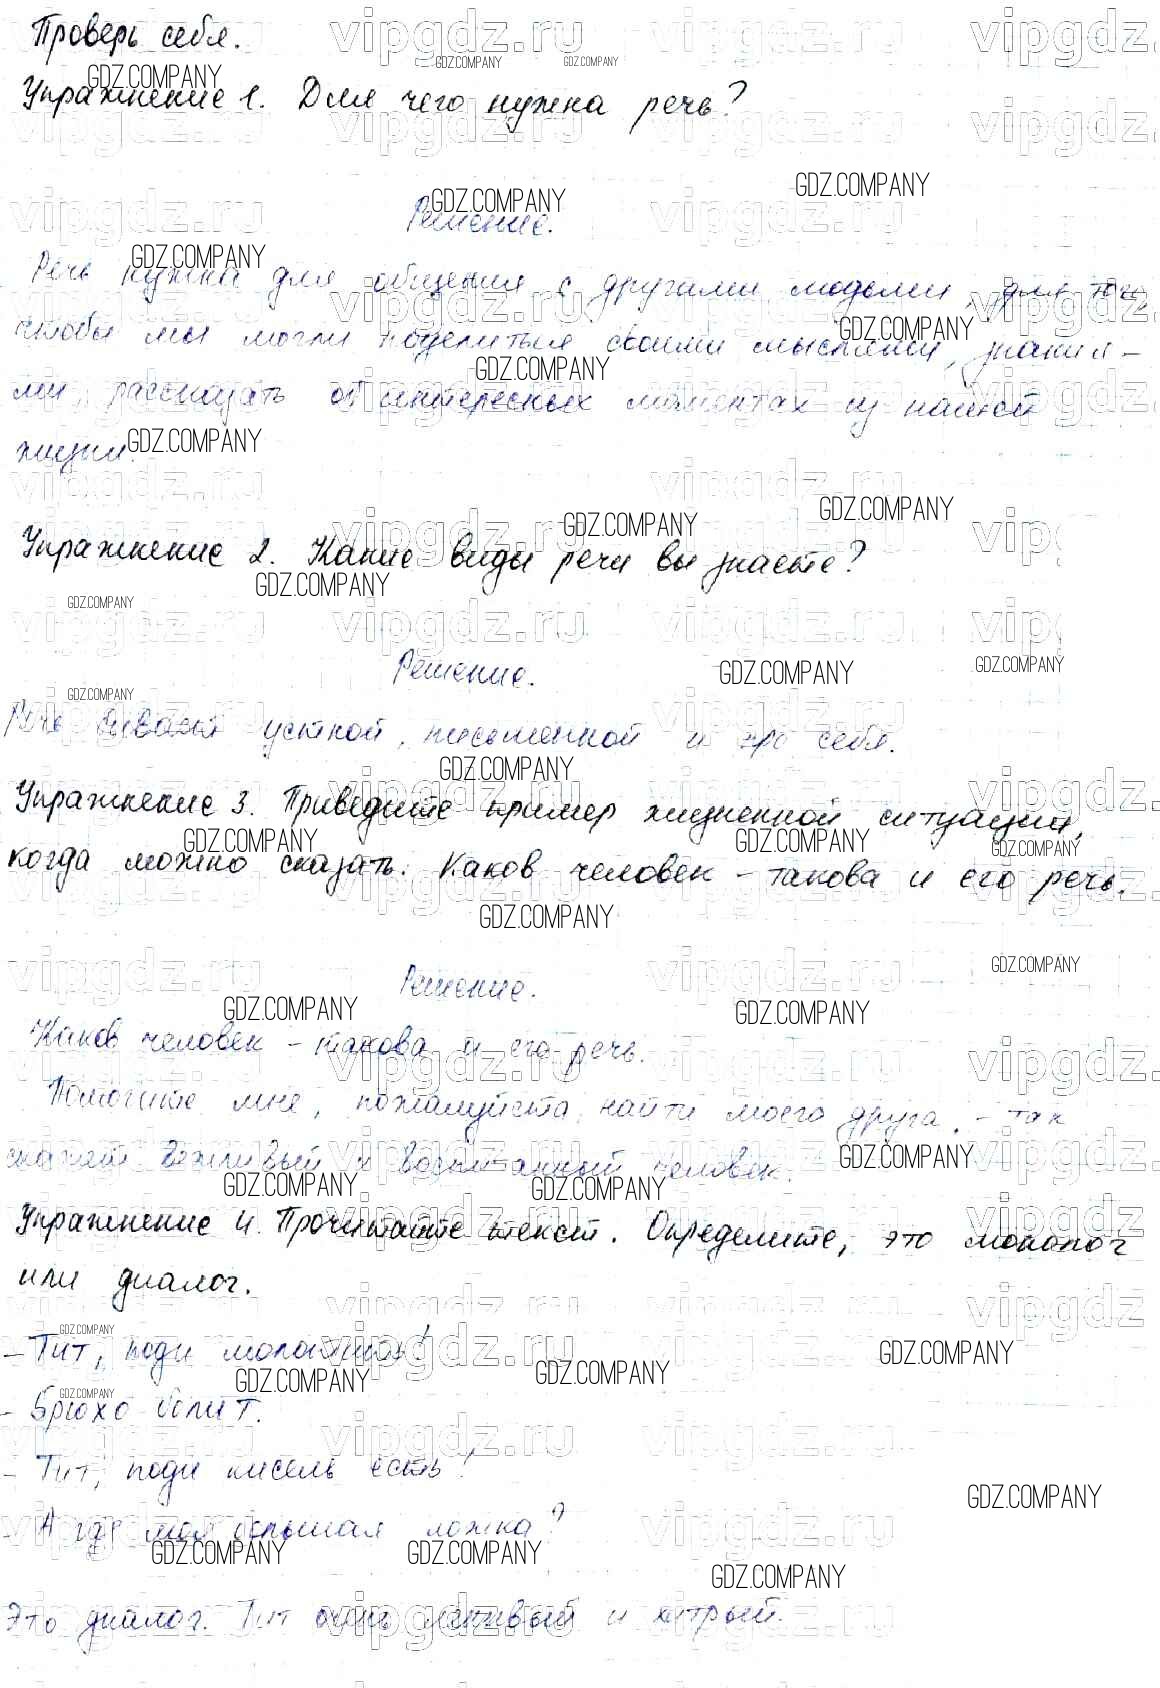 Проверь себя.
Упражнение 1. Для чего нужна речь?
Решение.
Речь нужна для общения с другими людьми, для того,
чтобы мы могли поделиться своими мыслями, знания-
ми, рассказать об интересных моментах из нашей
жизни.
Упражнение 2. Какие виды речи вы знаете?
Решение.
Речь бывает устной, письменной и про себя.
Упражнение 3. Приведите пример жизненной ситуации,
когда можно сказать: Каков человек - такова и его речь.
Решение.
Каков человек - такова и его речь.
Помогите мне, пожалуйста, найти моего друга. - так
скажет вежливый и воспитанный человек.
Упражнение 4. Прочитайте текст. Определите, это монолог
или диалог.
- Тит, поди молотить!
- Брюхо болит.
- Тит, поди кисель есть!
- А где моя большая ложка?
Это диалог. Тит очень ленивый и хитрый.
vipgdz.ru
GDZ.COMPANY